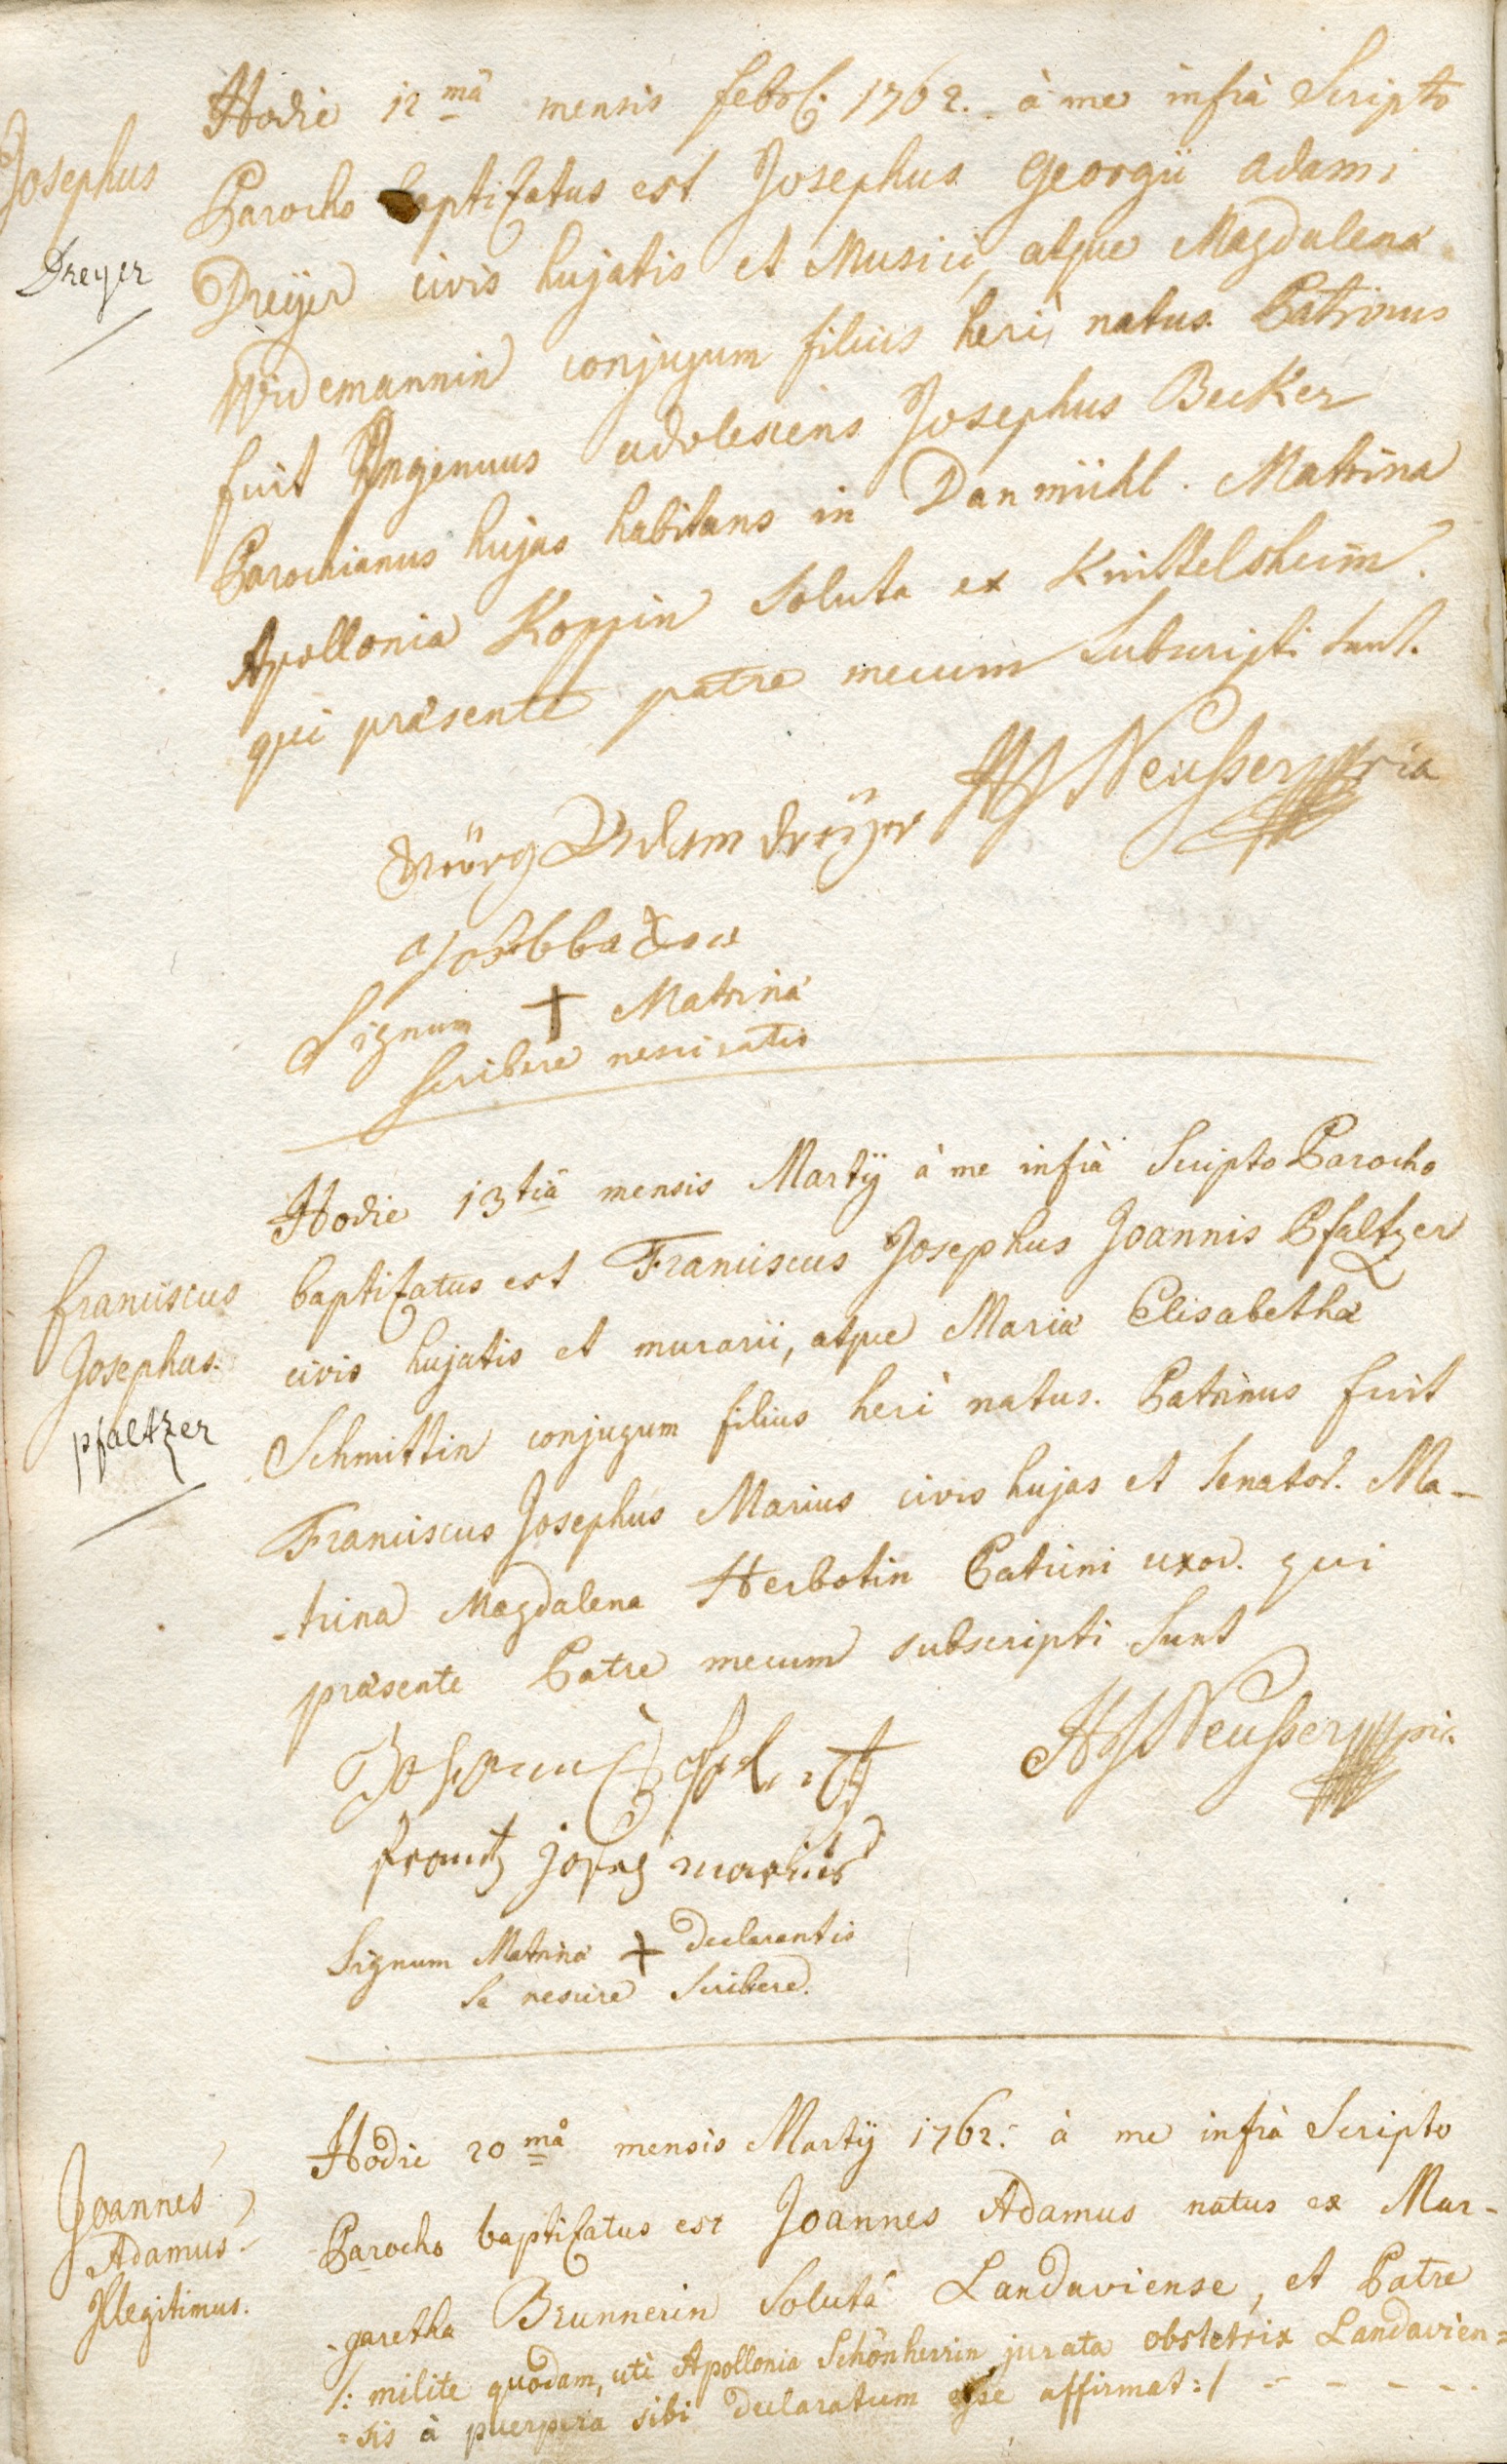 Hodie 12mâ mensis febrl. 1762. à me infrà Scripto
Josephus
Parocho baptisatus est Josephus Georgii adami
Dreyer
Dreÿer civis hujatis et Musici, atque Magdalena
Widemannin conjugum filius heri natus. Patrinus
fuit Ingenuus adolescens Josephus Becker
Parochianus hujas habitans in Danmühl. Matrina
Apollonia Koppin Soluta ex Knittelsheim.
qui præsente patre mecum Subscripti Sunt.
Neusser
Adam dreÿer
Signum + Matrinæ
Scribere nesciatis
Hodie 13tiâ mensis Martÿ à me infrà Scripto Parocho
franciscus
Josephus.
pfaltzer
baptisatus est Franciscus Josephus Joannis Pfaltzer
civis hujatis et murarii, atque Maria Elisabetha
Schmittin conjugum filius heri natus. Patrinus fuit
Franciscus Josephus Marius civis hujas et Senator. Ma-
-trina Magdalena Herbotin Patrini uxor. qui
præsente Patre mecum subscripti Sunt
Neusser
frantz josep marius
Signum Matrinæ + declarantis
Se nescire Scribere.
Hodie 20mâ mensis Martÿ 1762. à me infrà Scripto
Joannes
Adamus
Illegitimus.
Parocho baptisatus est Joannes Adamus natus ex Mar-
-garetha Brunnerin Solutâ Landaviense, et Patre
/: milite quodam, uti Apollonia Schönherrin jurata obstetrix Landavien=
=sis à puerpera sibi declaratum esse affirmat :/ - - - - -